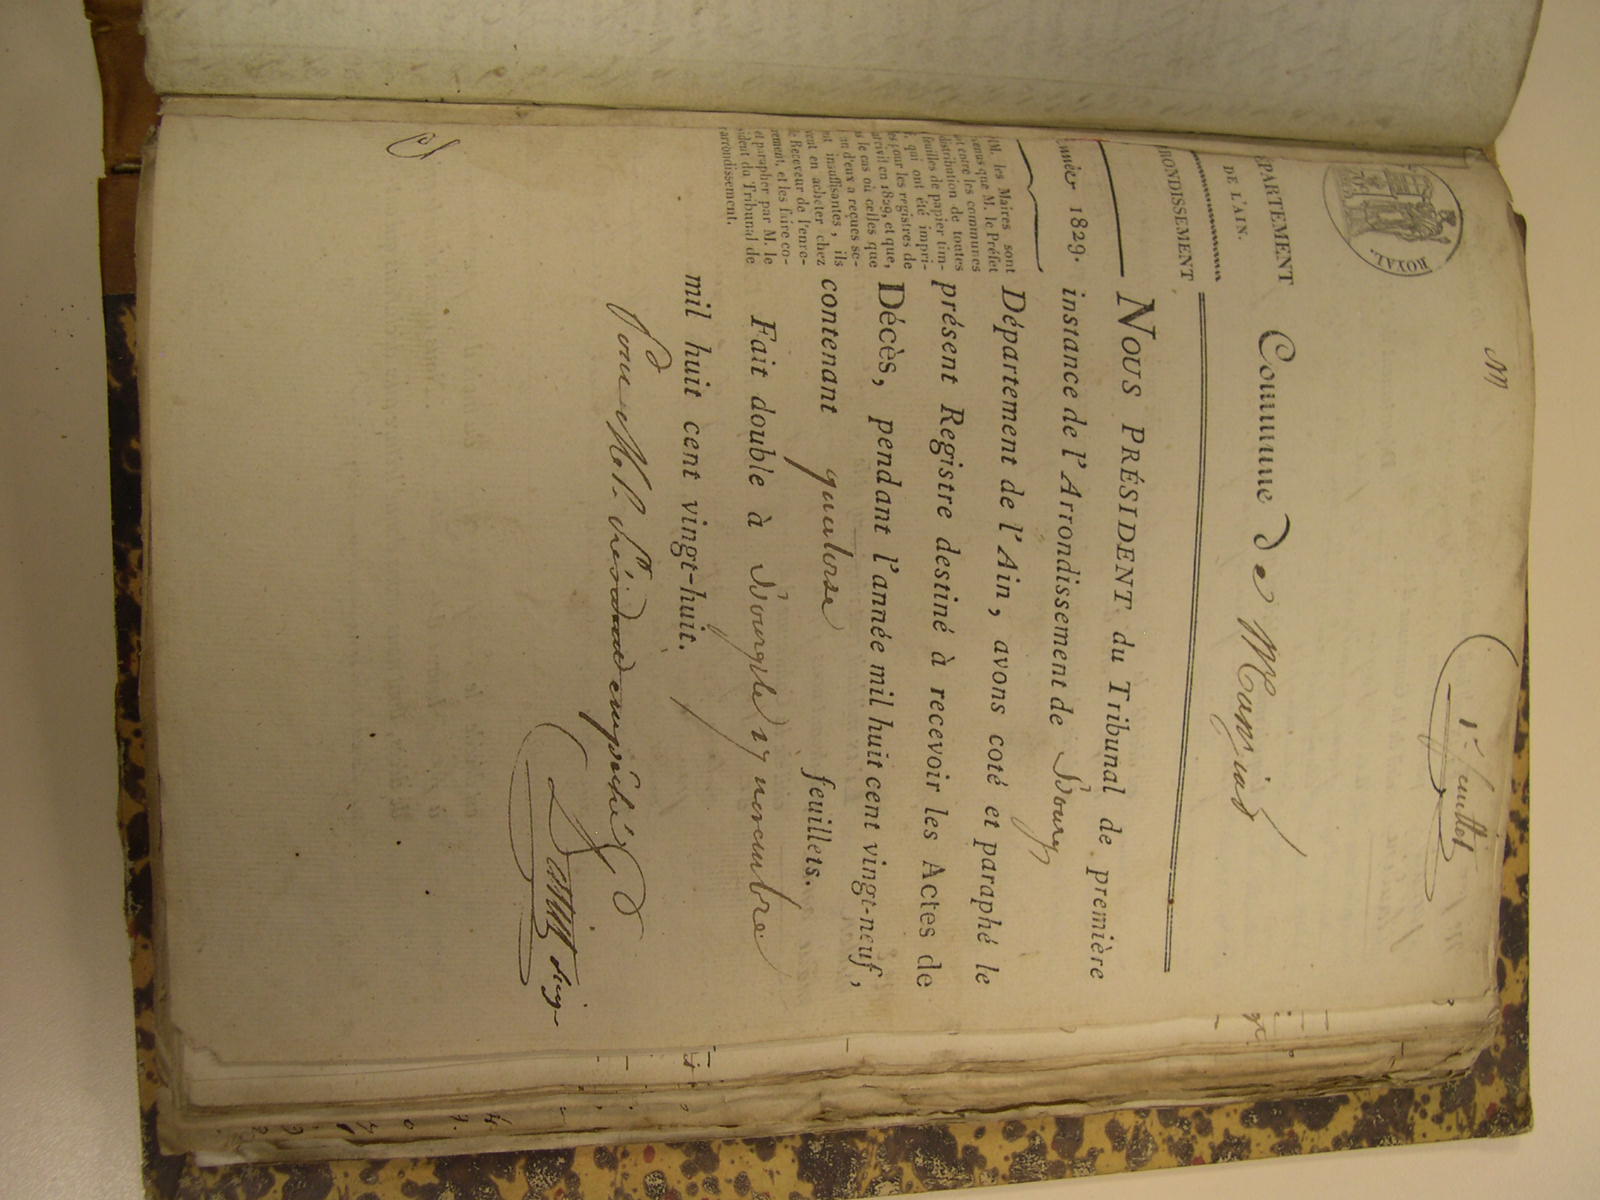 M
1er feuillet
ROYAL.
PARTEMENT
DE L'AIN.
RONDISSEMENT
Commune de Manziat
NOUS PRÉSIDENT du Tribunal de première
instance de l'Arrondissement de Bourg
Département de l'Ain, avons coté et paraphé le
présent Registre destiné à recevoir les Actes de
Décès, pendant l'année mil huit cent vingt-neuf,
contenant quatorze feuillets.
Fait double à Bourg le 27 novembre
mil huit cent vingt-huit.
Pour M. le Président empêché
année 1829.
M. les Maires sont
enus que M. le Préfet
t entre les communes
distribution de toutes
feuilles de papier tim-
, qui ont été impri-
es pour les registres de
at civil en 1829, et que,
s le cas où celles que
un d'eux a reçues se-
nt insuffisantes, ils
vent en acheter chez
e Receveur de l'enre-
rement, et les faire co-
et parapher par M. le
sident du Tribunal de
arrondissement.